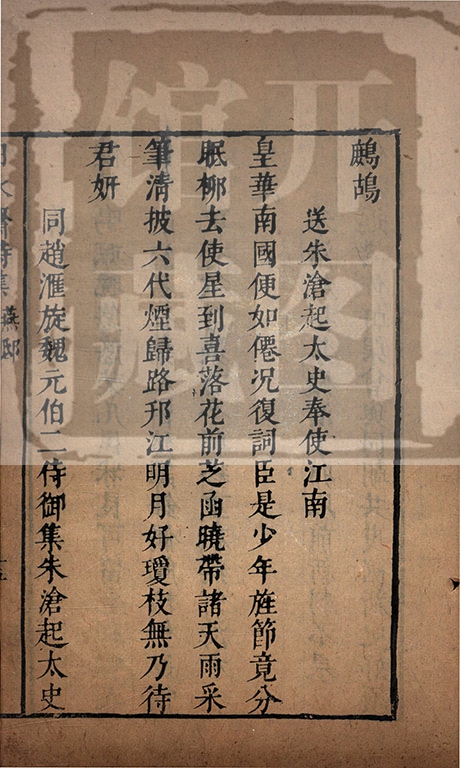 鷓鴣
送朱滄起太史奉使江南
皇華南國便如僊况復詞臣是少年旌節竟分
眠柳去使星到喜落花前芝函曉帶諸天雨采
筆清披六代煙歸路邗江明月好瓊枝無乃待
君妍
同趙滙旋魏元伯二侍御集朱滄起太史
燕邸